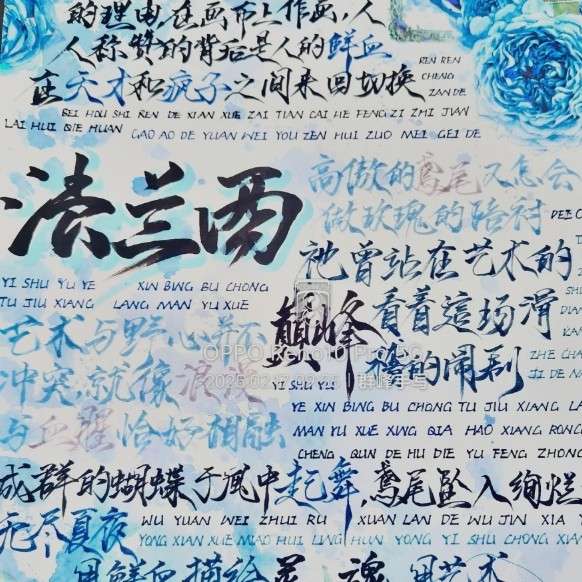 的理由,在画布上作画,人
人称赞的背后是人的鲜血
在天才和疯子之间来回切换
REN REN
CHENG
ZAN DE
BEI HOU SHI REN DE XIAN XUE ZAI TIAN CAI HE FENG ZI ZHI JIAN
LAI HUI QIE HUAN GAO AO DE YUAN WEI YOU ZEN HUI ZUO MEI GEI DE
法兰西
高傲的鸢尾又怎会
做玫瑰的陪衬
祂曾站在艺术的
巅峰 看着這场滑
稽的闹剧
YI SHU YU YE XIN BING BU CHONG
TU JIU XIANG LANG MAN YU XUE
YI SHU YU
艺术与野心并不
冲突,就像浪漫
与血腥恰好相融
YE XIN BING BU CHONG TU JIU XIANG LA
MAN YU XUE XING QIA HAO XIANG RONG
CHENG QUN DE HU DIE YU FENG ZHONG
成群的蝴蝶于風中起舞,鸢尾坠入绚烂
无尽夏夜
WU YUAN WEI ZHUI RU XUAN LAN DE WU JIN XIA
YONG XIAN XUE MIAO HUI LING HUN YONG YI SHU CHONG XIN
用鲜血描绘灵魂 用艺术
OPPO Reno10 Pro 5G